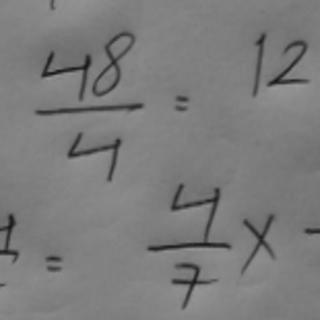 48/4 = 12
= 4/7 x -